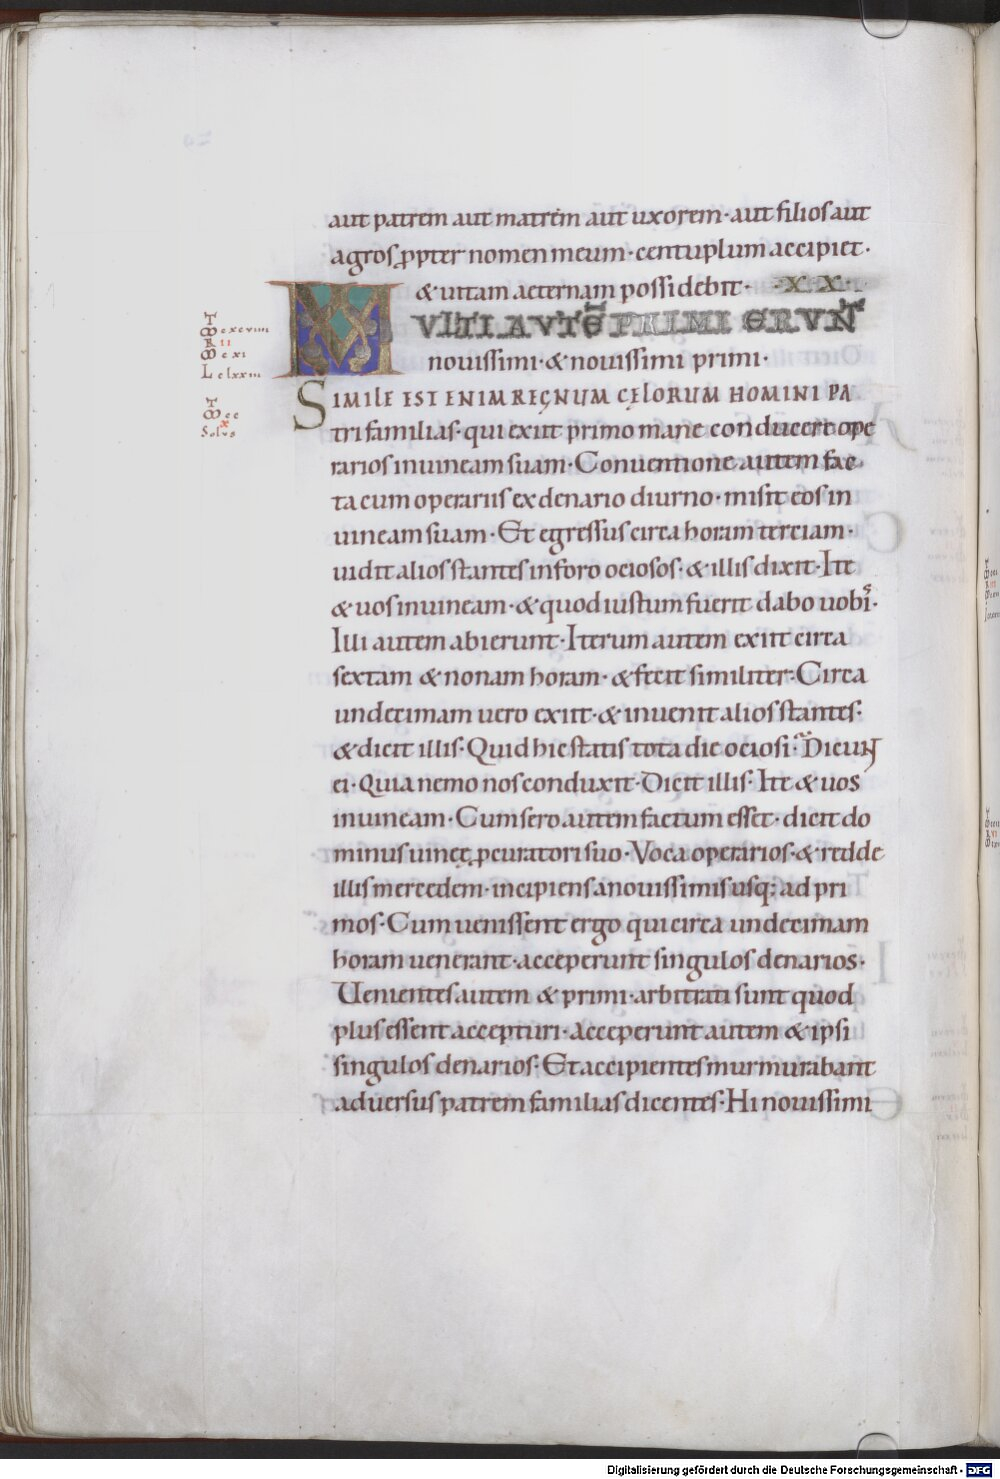 aut patrem aut matrem aut uxorem· aut filios aut
agros ꝓpter nomen meum· centuplum accipiet·
& uitam aeternam possidebit· ·X·X·
MVLTI AVTĒ PRIMI ERVNT
nouissimi· & nouissimi primi·
SIMILE EST ENIM REGNUM CĘLORUM HOMINI PA
tri familias· qui exiit primo mane conducere ope
rarios in uineam suam· Conuentione autem fac
ta cum operariis ex denario diurno· misit eos in
uineam suam· Et egressus circa horam terciam·
uidit alios stantes in foro ociosos· & illis dixit· Ite
& uos in uineam· & quod iustum fuerit dabo uobis·
Illi autem abierunt· Iterum autem exiit circa
sextam & nonam horam· & fecit similiter· Circa
undecimam uero exiit· & inuenit alios stantes·
& dicit illis· Quid hic statis tota die ociosi· Dicunt
ei· Quia nemo nos conduxit· Dicit illis· Ite & uos
in uineam· Cum sero autem factum esset· dicit do
minus uineę ꝓcuratori suo· Voca operarios· & redde
illis mercedem· incipiens a nouissimis usq; ad pri
mos· Cum uenissent ergo qui circa undecimam
horam uenerant· acceperunt singulos denarios·
Uenientes autem & primi· arbitrati sunt quod
plus essent accepturi· Acceperunt autem & ipsi
singulos denarios· Et accipientes murmurabant
aduersus patrem familias dicentes· Hi nouissimi
T
M cxcviiii
R II
M cxi
L clxxiii
T
M cc
X
Solus
Digitalisierung gefördert durch die Deutsche Forschungsgemeinschaft - DFG